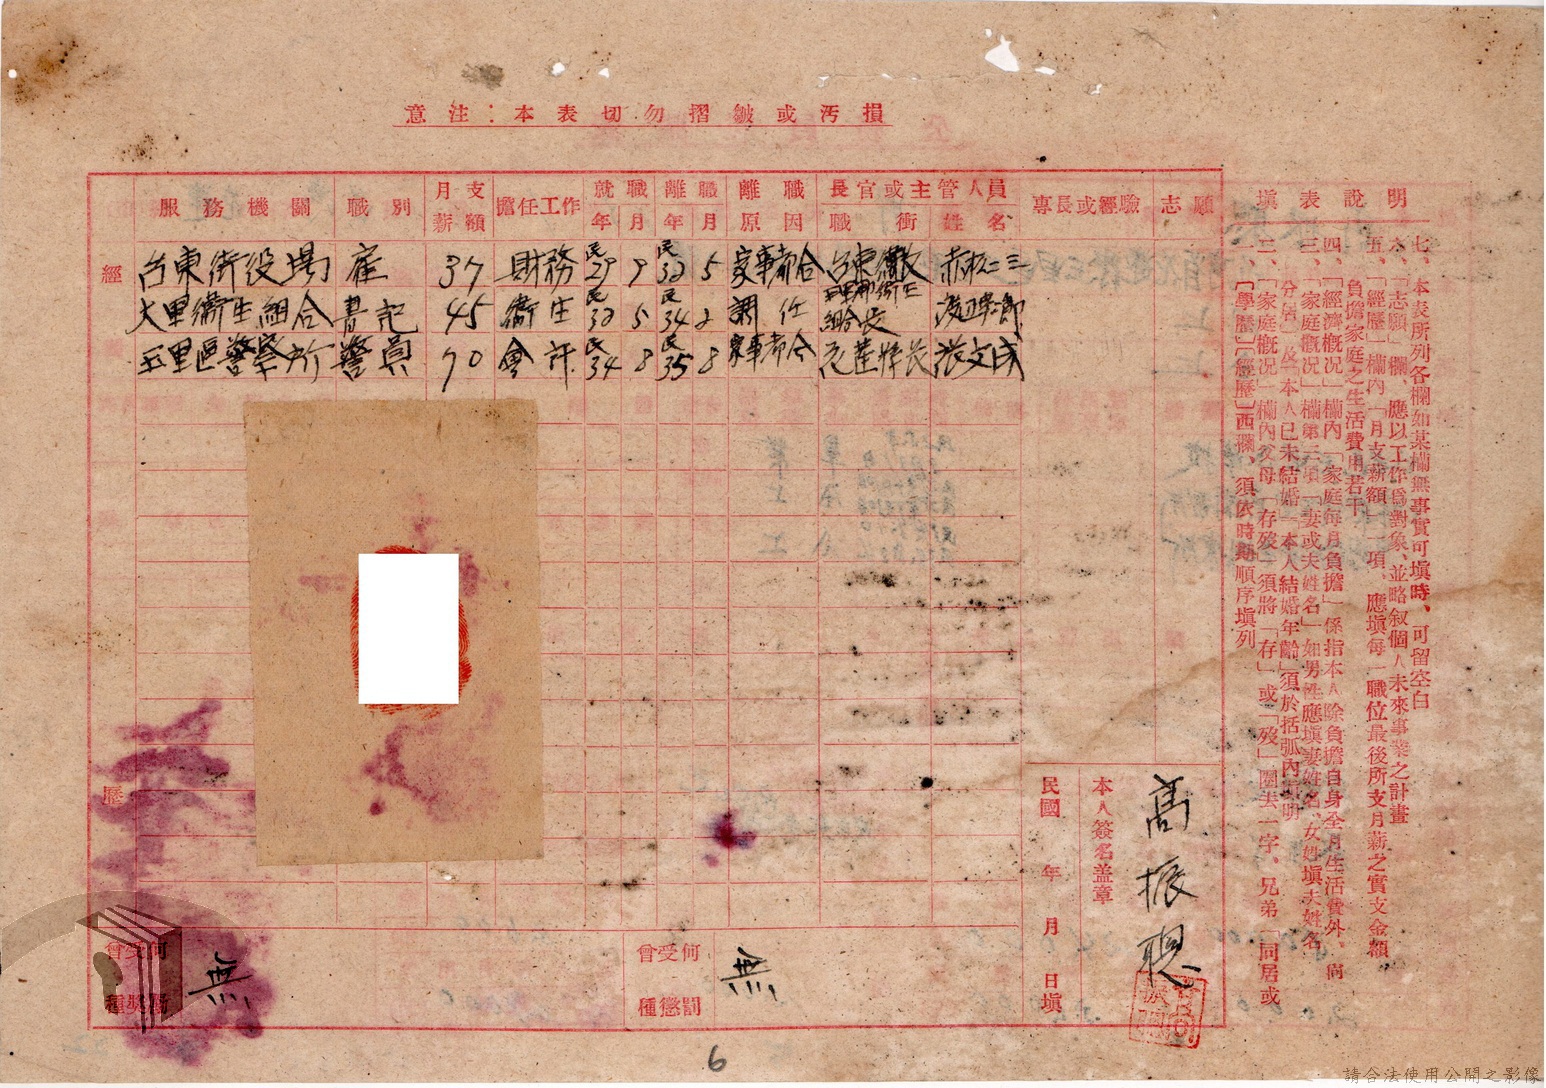 意注：本表切勿摺皺或汚損
經歷
服務機關 職別 月支薪額 擔任工作 就職年月 離職年月 離職原因 長官或主管人員 職銜 姓名 專長或經驗 志願
台東街役場 雇 37 財務 民29 9 民32 5 家事都合 台東街長
大里衛生組合 書記 45 衛生 民32 5 民34 2 調任 組合長
玉里區警察所 警員 70 會計 民34 8 民35 8 家事都合 張文成
曾受何種獎勵 無
曾受何種懲罰 無
本人簽名盖章
高振聰
民國 年 月 日填
填表說明
一、「學歷」「經歷」西欄、須依時期順序填列
二、「家庭概况」欄內父母「存歿」須將「存」或「歿」圈去一字、兄弟「同居或
分居」及「本人已未結婚」「本人結婚年齡」須於括弧內註明
三、「家庭概况」欄第三項「妻或夫姓名」如男性應填妻姓名、女姓填夫姓名
四、「經濟概况」欄內「家庭每月負擔」係指本人除負擔自身全月生活費外、尚
負擔家庭之生活費用若干
五、「經歷」欄內「月支薪額」項、應填每一職位最後所支月薪之實支金額
六、「志願」欄、應以工作爲對象、並略叙個人未來事業之計畫
七、本表所列各欄如某欄無事實可填時、可留空白
6
請合法使用公開之影像